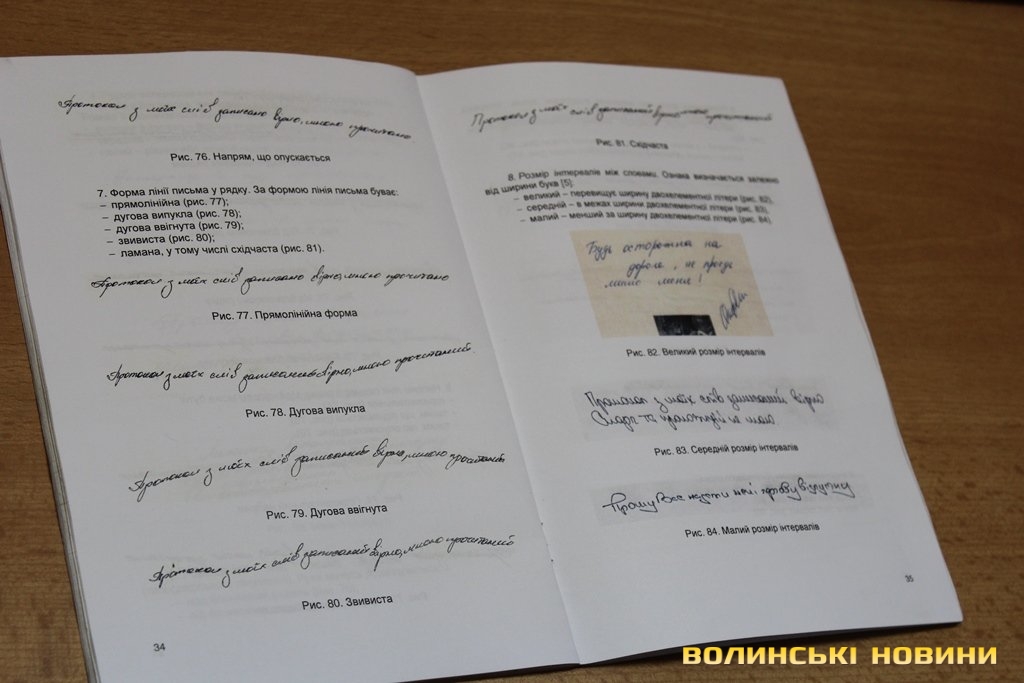 Протокол з моїх слів записано вірно, мною прочитано
Рис. 76. Напрям, що опускається
7. Форма лінії письма у рядку. За формою лінія письма буває:
– прямолінійна (рис. 77);
– дугова випукла (рис. 78);
– дугова ввігнута (рис. 79);
– звивиста (рис. 80);
– ламана, у тому числі східчаста (рис. 81).
Протокол з моїх слів записано вірно, мною прочитано
Рис. 77. Прямолінійна форма
Протокол з моїх слів записаний вірно, мною прочитаний
Рис. 78. Дугова випукла
Протокол з моїх слів записаний вірно, мною прочитаний
Рис. 79. Дугова ввігнута
Протокол з моїх слів записаний вірно, мною прочитаний
Рис. 80. Звивиста
34
Протокол з моїх слів записаний вірно мною прочитаний
Рис. 81. Східчаста
8. Розмір інтервалів між словами. Ознака визначається залежно
від ширини букв [5]:
– великий – перевищує ширину двохелементної літери (рис. 82),
– середній – в межах ширини двохелементної літери (рис. 83),
– малий – менший за ширину двохелементної літери (рис. 84).
Будь осторожна на
дороге, не проедь
мимо меня!
Рис. 82. Великий розмір інтервалів
Протокол з моїх слів записаний вірно
Рис. 83. Середній розмір інтервалів
Прошу Вас
Рис. 84. Малий розмір інтервалів
35
ВОЛИНСЬКІ НОВИНИ